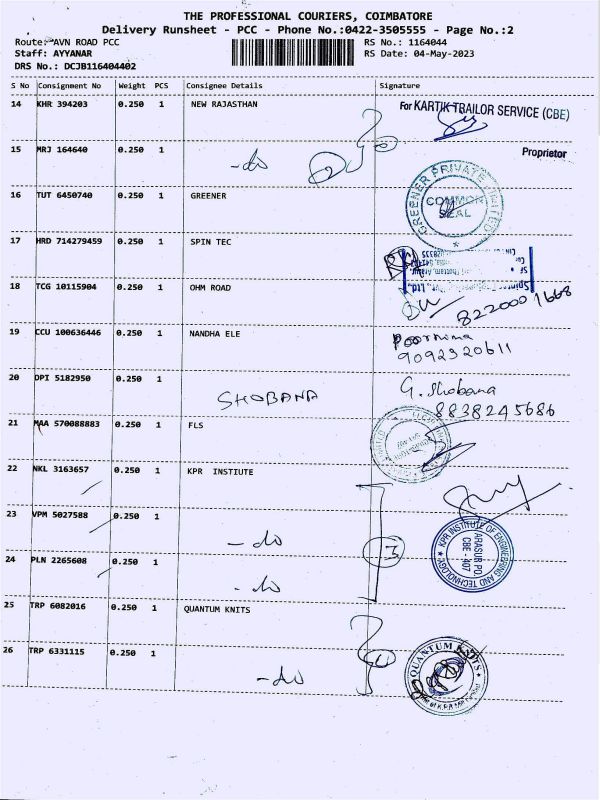 THE PROFESSIONAL COURIERS, COIMBATORE
Delivery Runsheet - PCC - Phone No.:0422-3505555 - Page No.:2
Route: AVN ROAD PCC RS No.: 1164044
Staff: AYYANAR RS Date: 04-May-2023
DRS No.: DCJB116404402
S No Consignment No Weight PCS Consignee Details Signature
14 KHR 394203 0.250 1 NEW RAJASTHAN For KARTIK TRAILOR SERVICE (CBE)
15 MRJ 164640 0.250 1 -do 2 Proprietor
16 TUT 6450740 0.250 1 GREENER GREENER PRIVATE LIMITED COMMON SEAL
17 HRD 714279459 0.250 1 SPIN TEC
18 TCG 10115904 0.250 1 OHM ROAD 8220001668
19 CCU 100636446 0.250 1 NANDHA ELE Poornima
9092320611
20 DPI 5182950 0.250 1 SHOBANA G. Shobana
8838245686
21 MAA 570088883 0.250 1 FLS
22 NKL 3163657 0.250 1 KPR INSTIUTE
23 VPM 5027588 0.250 1 -do 3 KPR INSTITUTE OF ENGINEERING AND TECHNOLOGY ARASUR PO. CBE - 407
24 PLN 2265608 0.250 1 -do
25 TRP 6082016 0.250 1 QUANTUM KNITS
26 TRP 6331115 0.250 1 -do QUANTUM KNITS